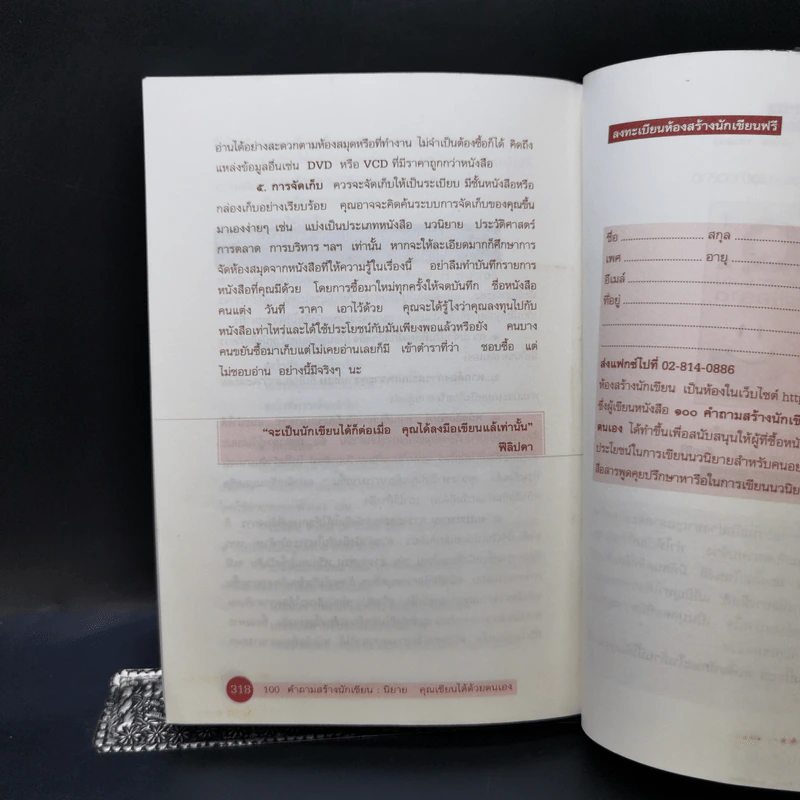 อ่านได้อย่างสะดวกตามห้องสมุดหรือที่ทำงาน ไม่จำเป็นต้องซื้อก็ได้ คิดถึง
แหล่งข้อมูลอื่นเช่น DVD หรือ VCD ที่มีราคาถูกกว่าหนังสือ
๕. การจัดเก็บ ควรจะจัดเก็บให้เป็นระเบียบ มีชั้นหนังสือหรือ
กล่องเก็บอย่างเรียบร้อย คุณอาจจะคิดค้นระบบการจัดเก็บของคุณขึ้น
มาเองง่ายๆ เช่น แบ่งเป็นประเภทหนังสือ นวนิยาย ประวัติศาสตร์
การตลาด การบริหาร ฯลฯ เท่านั้น หากจะให้ละเอียดมากก็ศึกษาการ
จัดห้องสมุดจากหนังสือที่ให้ความรู้ในเรื่องนี้ อย่าลืมทำบันทึกรายการ
หนังสือที่คุณมีด้วย โดยการซื้อมาใหม่ทุกครั้งให้จดบันทึก ชื่อหนังสือ
คนแต่ง วันที่ ราคา เอาไว้ด้วย คุณจะได้รู้ไงว่าคุณลงทุนไปกับ
หนังสือเท่าไหร่และได้ใช้ประโยชน์กับมันเพียงพอแล้วหรือยัง คนบาง
คนขยันซื้อมาเก็บแต่ไม่เคยอ่านเลยก็มี เข้าตำราที่ว่า ชอบซื้อ แต่
ไม่ชอบอ่าน อย่างนี้มีจริงๆ นะ
"จะเป็นนักเขียนได้ก็ต่อเมื่อ คุณได้ลงมือเขียนแล้เท่านั้น"
ฟีลิปดา
318 100 คำถามสร้างนักเขียน : นิยาย คุณเขียนได้ด้วยตนเอง
ลงทะเบียนห้องสร้างนักเขียนฟรี
ชื่อ ........................ สกุล ..................
เพศ ........................ อายุ ..................
อีเมล์ ........................
ที่อยู่ ........................
ส่งแฟกซ์ไปที่ 02-814-0886
ห้องสร้างนักเขียน เป็นห้องในเว็บไซต์ http
ซึ่งผู้เขียนหนังสือ ๑๐๐ คำถามสร้างนักเขี
ตนเอง ได้ทำขึ้นเพื่อสนับสนุนให้ผู้ที่ซื้อหนั
ประโยชน์ในการเขียนนวนิยายสำหรับคนอย
สื่อสารพูดคุยปรึกษาหารือในการเขียนนวนิย